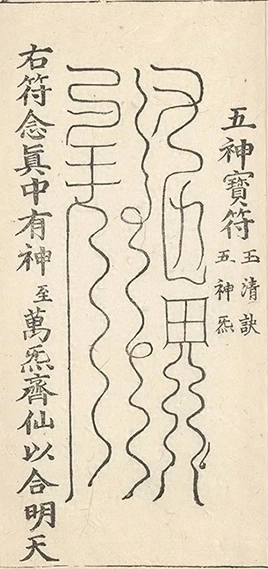 五神寶符
玉清訣
五神炁
右符念眞中有神至萬炁齊仙以合明天